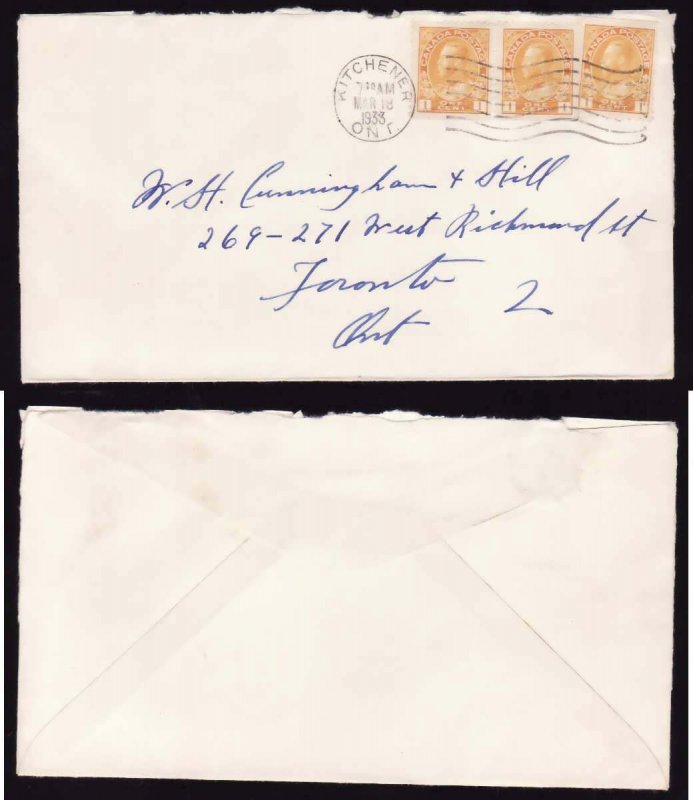 CANADA POSTAGE CANADA POSTAGE CANADA POSTAGE
1 ONE CENT 1 1 ONE CENT 1 1 ONE CENT 1
KITCHENER
AM
MAR 18
1933
ONT.
W. H. Cunningham & Hill
269-271 West Richmond St
Toronto 2
Ont